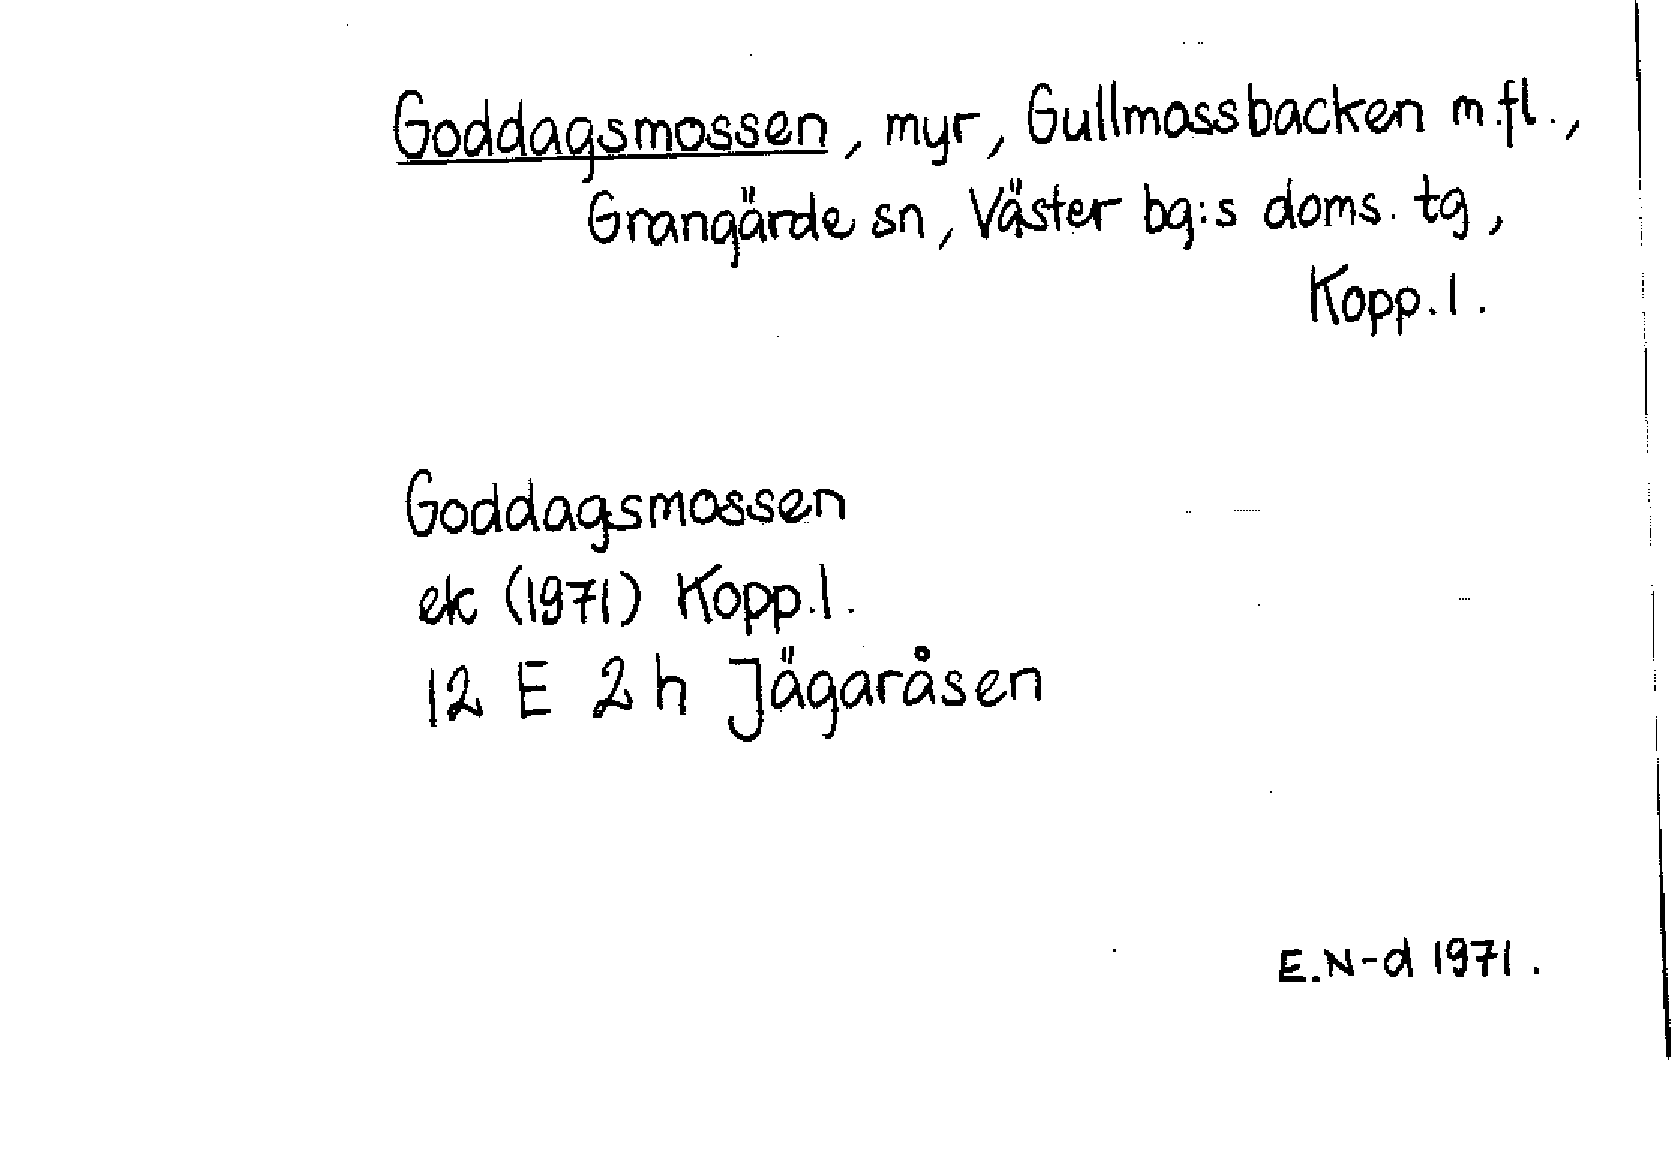 Goddagsmossen, myr, Gullmossbacken m.fl.,
Grangärde sn, Väster bg:s doms. tg,
Kopp.l.
Goddagsmossen
ek (1971) Kopp.l.
12 E 2 h Jägaråsen
E.N-d 1971.